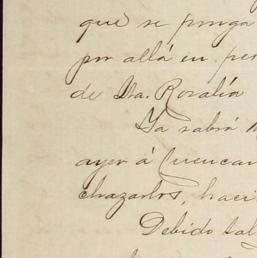 que se ponga
por allá en per
de Sta. Rosalía
Ya sabrá
ayer á Cuencam
chazarlos, haci
Debido tal